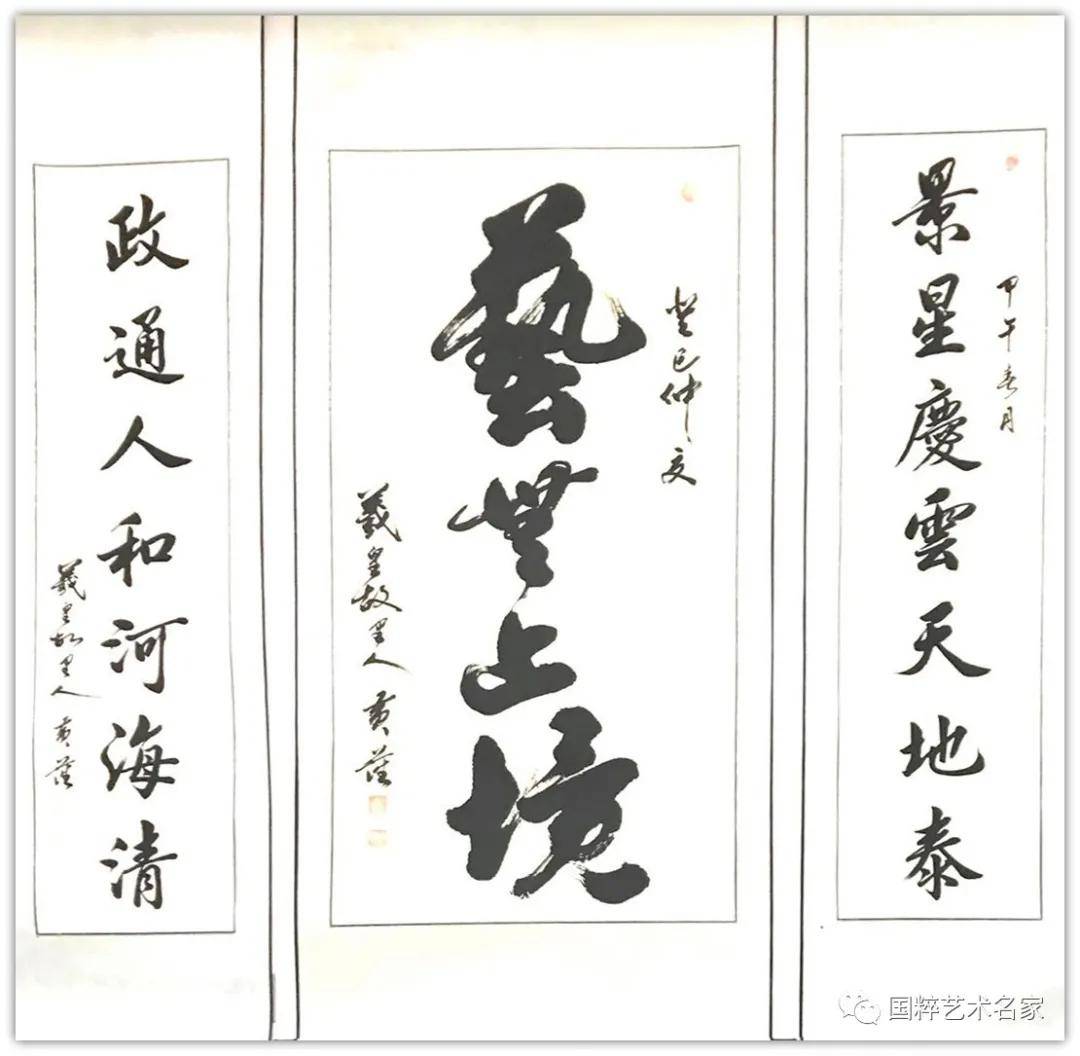 甲午春月
景星慶雲天地泰
癸巳仲夏
藝無止境
羲皇故里人 黄
政通人和河海清
羲皇故里人 黄
国粹艺术名家